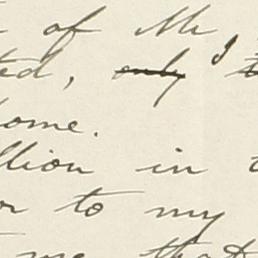 of Mr
ted, only I
home.
llion in
or to my
me that